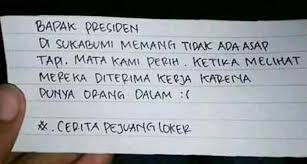 BAPAK PRESIDEN
DI SUKABUMI MEMANG TIDAK ADA ASAP
TAPI. MATA KAMI PERIH. KETIKA MELIHAT
MEREKA DITERIMA KERJA KARENA
PUNYA ORANG DALAM :(
&. CERITA PEJUANG LOKER